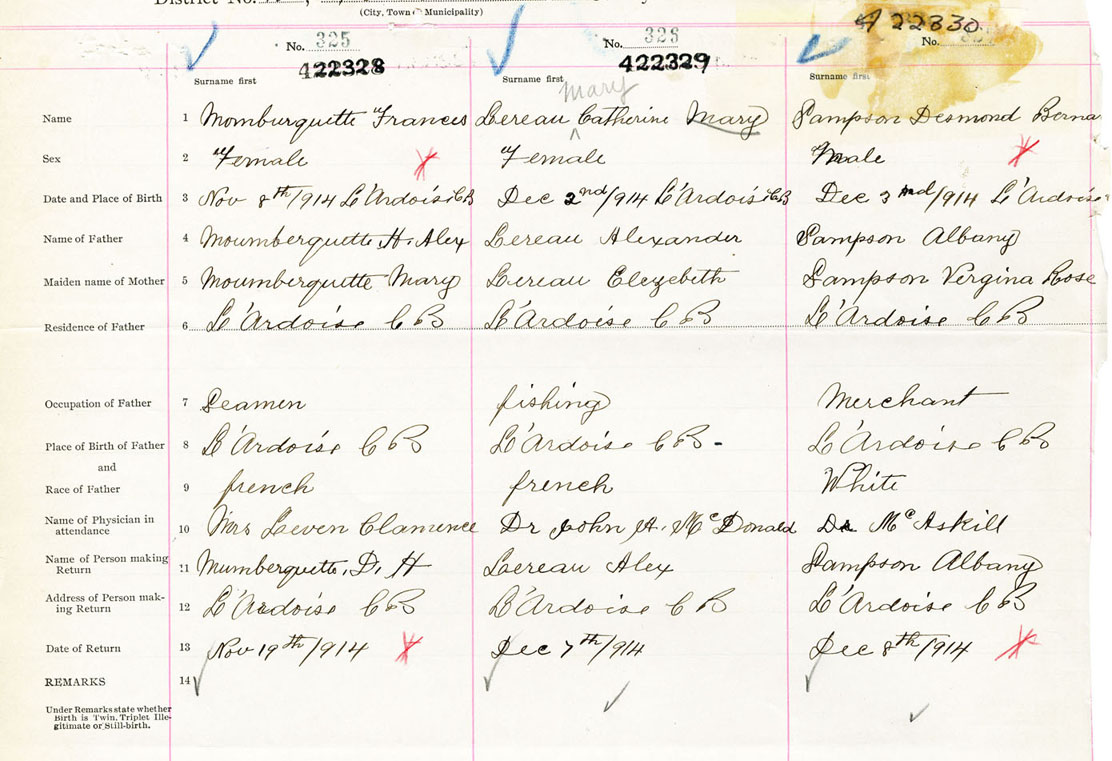 District No.
(City, Town or Municipality)
No. 325 No. 326 422330 No.
422328 422329
Surname first Surname first Surname first
Mary
Name 1 Momburquette Frances Lereau ^ Catherine Mary Sampson Desmond Berna
Sex 2 Female Female Male
Date and Place of Birth 3 Nov 8th/1914 L'Ardoise CB Dec 2nd/1914 L'Ardoise CB Dec 3nd/1914 L'Ardoise
Name of Father 4 Moumberquette, H. Alex Lereau Alexander Sampson Albany
Maiden name of Mother 5 Moumberquette Mary Lereau Elezebeth Sampson Vergina Rose
Residence of Father 6 L'Ardoise C B L'Ardoise C B L'Ardoise C B
Occupation of Father 7 Seamen fishing Merchant
Place of Birth of Father 8 L'Ardoise C B L'Ardoise C B - L'Ardoise C B
and
Race of Father 9 french french White
Name of Physician in
attendance 10 Mrs Leven Clamence Dr John A. McDonald Dr McAskill
Name of Person making
Return 11 Mumberquette, D, H Lereau Alex Sampson Albany
Address of Person mak-
ing Return 12 L'Ardoise C B L'Ardoise C B L'Ardoise C B
Date of Return 13 Nov 19th/1914 Dec 7th/1914 Dec 8th/1914
REMARKS 14
Under Remarks state whether
Birth is Twin, Triplet Ille-
gitimate or Still-birth.